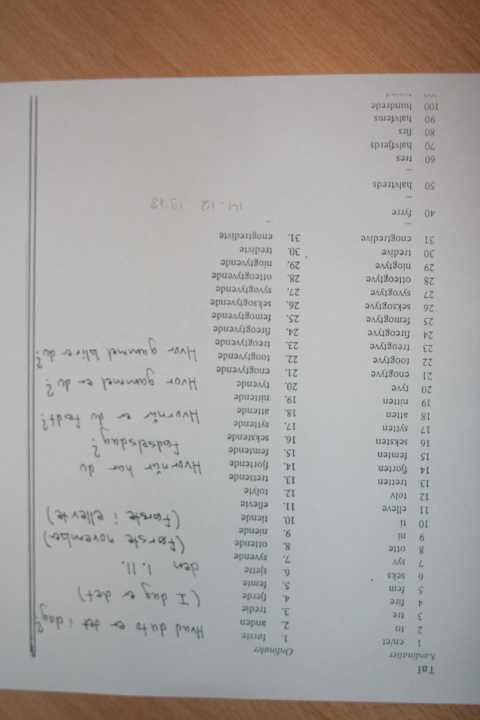 Tal
Kardinaler
1 en/et
2 to
3 tre
4 fire
5 fem
6 seks
7 syv
8 otte
9 ni
10 ti
11 elleve
12 tolv
13 tretten
14 fjorten
15 femten
16 seksten
17 sytten
18 atten
19 nitten
20 tyve
21 enogtyve
22 toogtyve
23 treogtyve
24 fireogtyve
25 femogtyve
26 seksogtyve
27 syvogtyve
28 otteogtyve
29 niogtyve
30 tredive
31 enogtredive
–
40 fyrre
–
50 halvtreds
–
60 tres
70 halvfjerds
80 firs
90 halvfems
100 hundrede
Ordinaler
1. første
2. anden
3. tredje
4. fjerde
5. femte
6. sjette
7. syvende
8. ottende
9. niende
10. tiende
11. ellevte
12. tolvte
13. trettende
14. fjortende
15. femtende
16. sekstende
17. syttende
18. attende
19. nittende
20. tyvende
21. enogtyvende
22. toogtyvende
23. treogtyvende
24. fireogtyvende
25. femogtyvende
26. seksogtyvende
27. syvogtyvende
28. otteogtyvende
29. niogtyvende
30. tredivte
31. enogtredivte
–
Hvad dato er det i dag?
(I dag er det)
den 1. 11.
(Første november)
(første i ellevte)
Hvornår har du
fødselsdag?
Hvornår er du født?
Hvor gammel er du?
Hvor gammel bliver du?
14.12